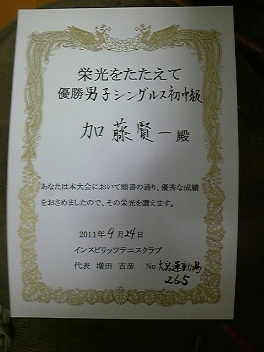 栄光をたたえて
優勝男子シングルス初中級
加藤賢一殿
あなたは本大会において頭書の通り、優秀な成績
をおさめましたので、その栄光を讃えます。
2011年9月24日
インスピリッツテニスクラブ
代表 増田 吉彦 No
265